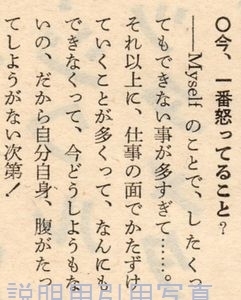 〇今、一番怒ってること?
――Myself のことで、したくっ
てもできない事が多すぎて……。
それ以上に、仕事の面でかたずけ
ていくことが多くって、なんにも
できなくって、今どうしようもな
いの、だから自分自身、腹がたっ
てしようがない次第!
説明用引用写真